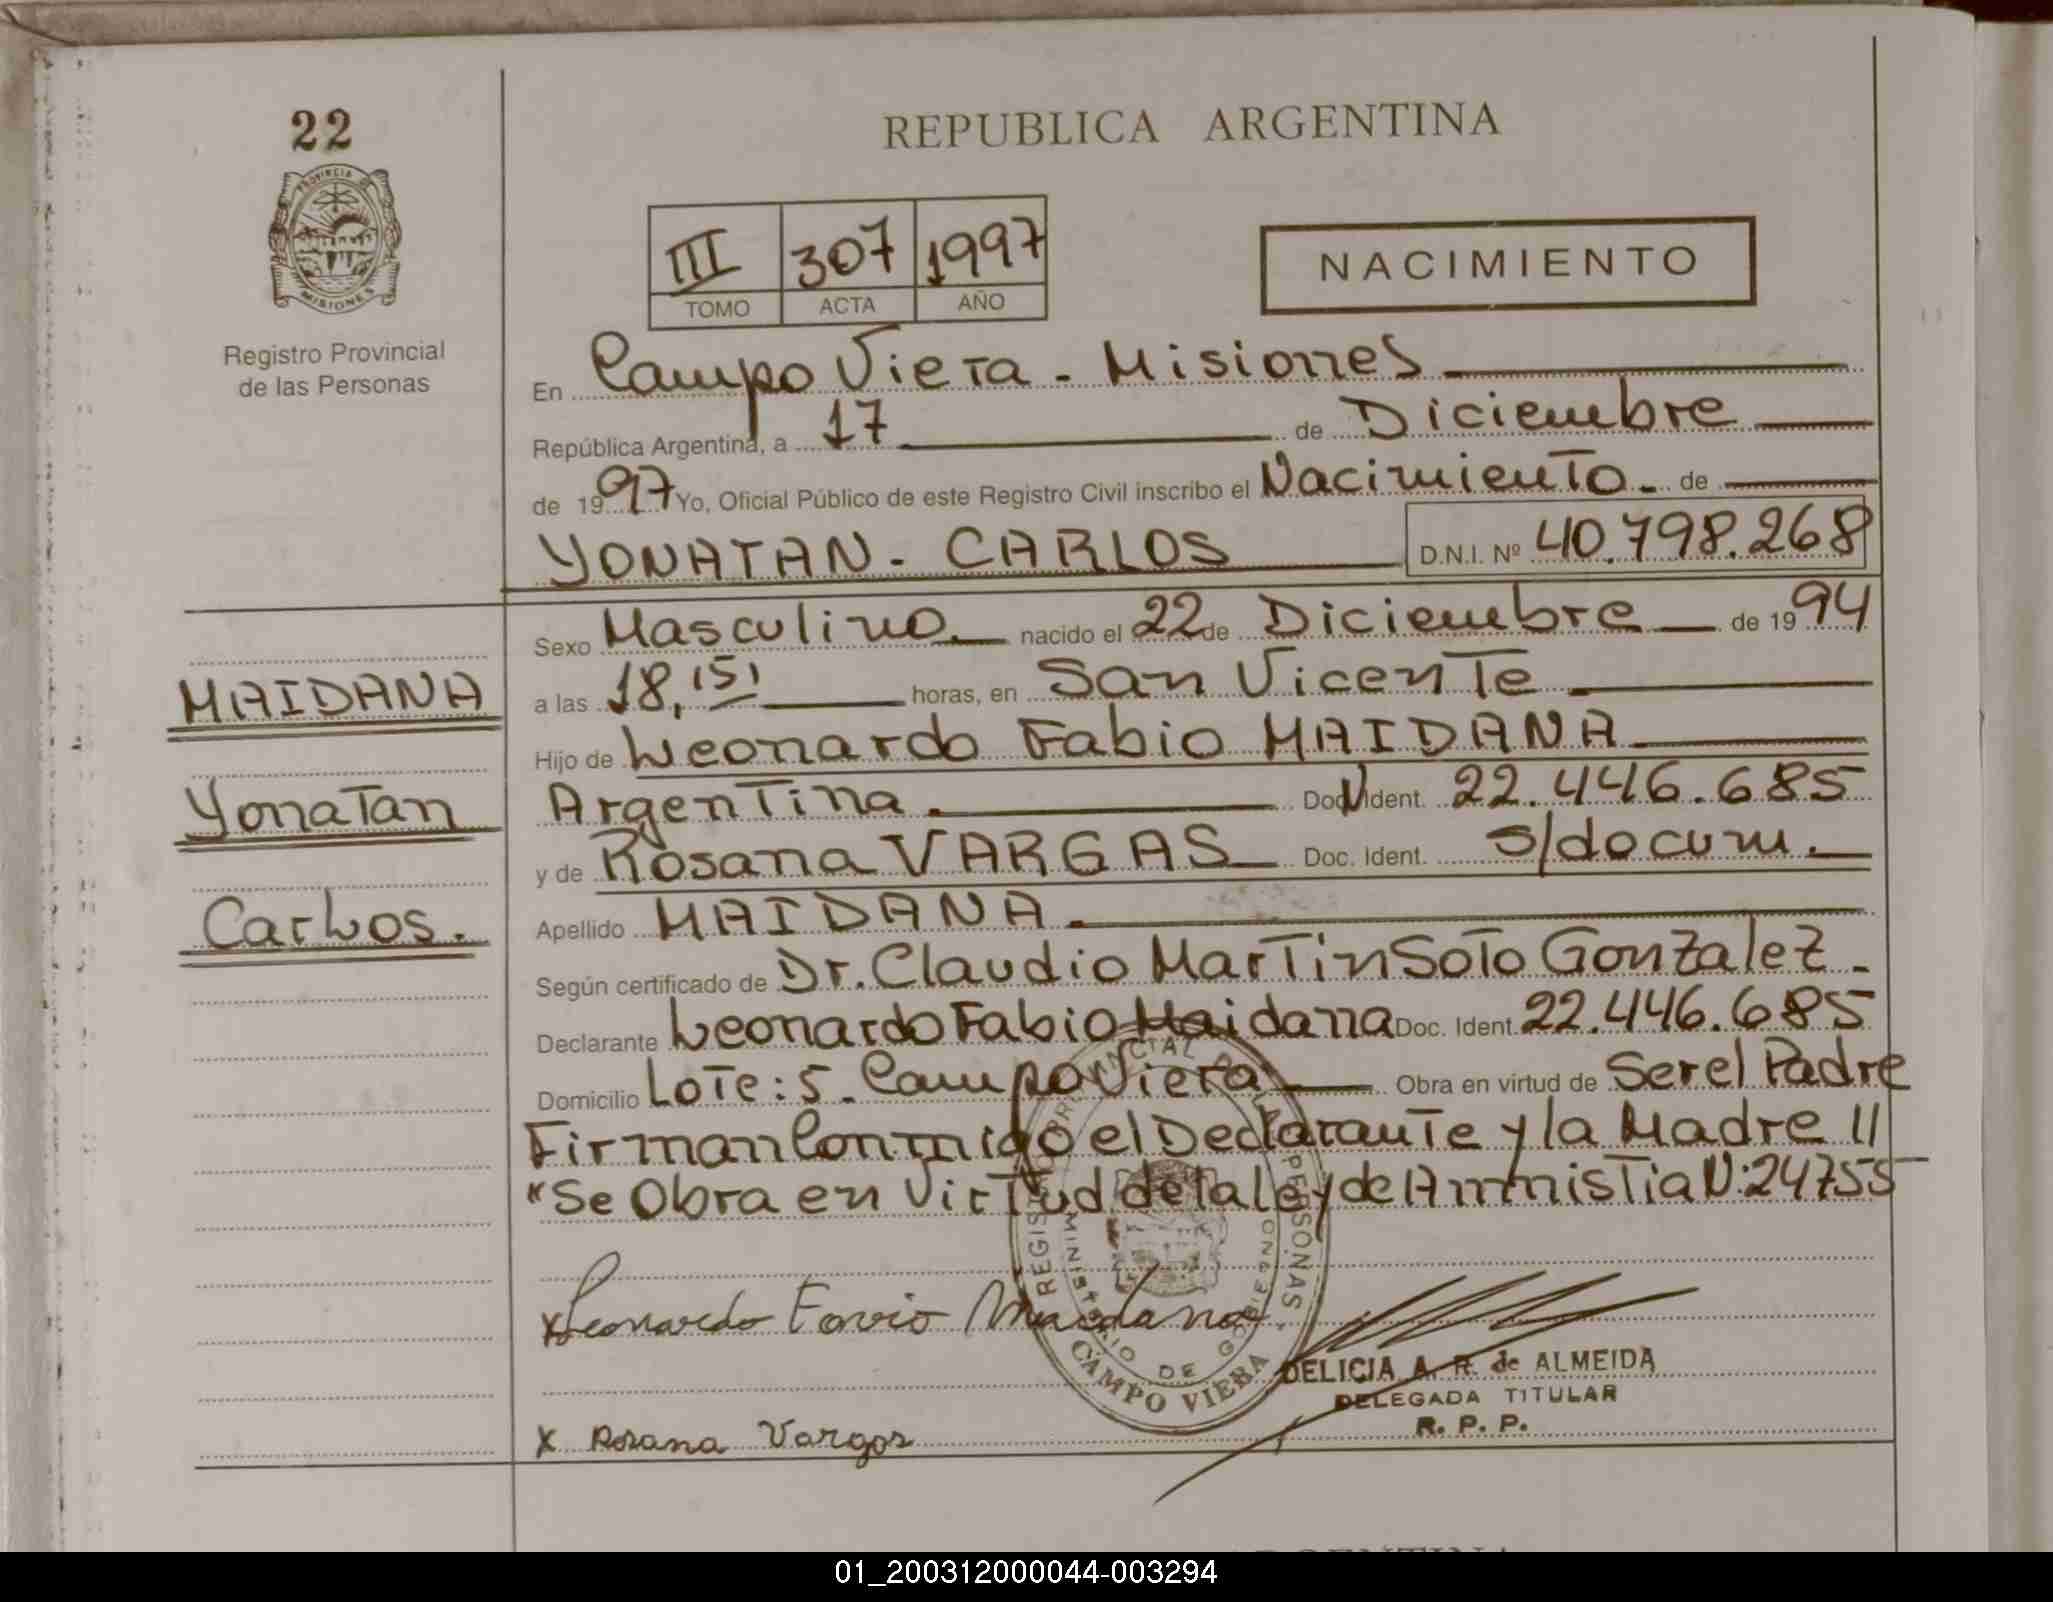 22
PROVINCIA DE
MISIONES
Registro Provincial
de las Personas
MAIDANA
Yonatan
Carlos.
REPUBLICA ARGENTINA
III 307 1997
TOMO ACTA AÑO
NACIMIENTO
En Campo Viera - Misiones
República Argentina, a 17 de Diciembre
de 1997 Yo, Oficial Público de este Registro Civil inscribo el Nacimiento - de
YONATAN - CARLOS D.N.I. Nº 40.798.268
Sexo Masculino nacido el 22 de Diciembre de 1994
a las 18,15' horas, en San Vicente
Hijo de Leonardo Fabio MAIDANA
Argentina. Doc N Ident. 22.446.685
y de Rosana VARGAS Doc. Ident. s/docum.
Apellido MAIDANA
Según certificado de Dr. Claudio Martin Soto Gonzalez -
Declarante Leonardo Fabio Maidana Doc. Ident. 22.446.685
Domicilio Lote: 5. Campo Viera Obra en virtud de Ser el Padre
Firman Conmigo el Declarante y la Madre //
"Se Obra en Virtud de la ley de Amnistia N: 24755
x Leonardo Favio Maidana
REGISTRO PROVINCIAL DE LAS PERSONAS
MINISTERIO DE GOBIERNO
CAMPO VIERA
DELICIA A. R. de ALMEIDA
DELEGADA TITULAR
R. P. P.
x Rosana Vargas
01_200312000044-003294